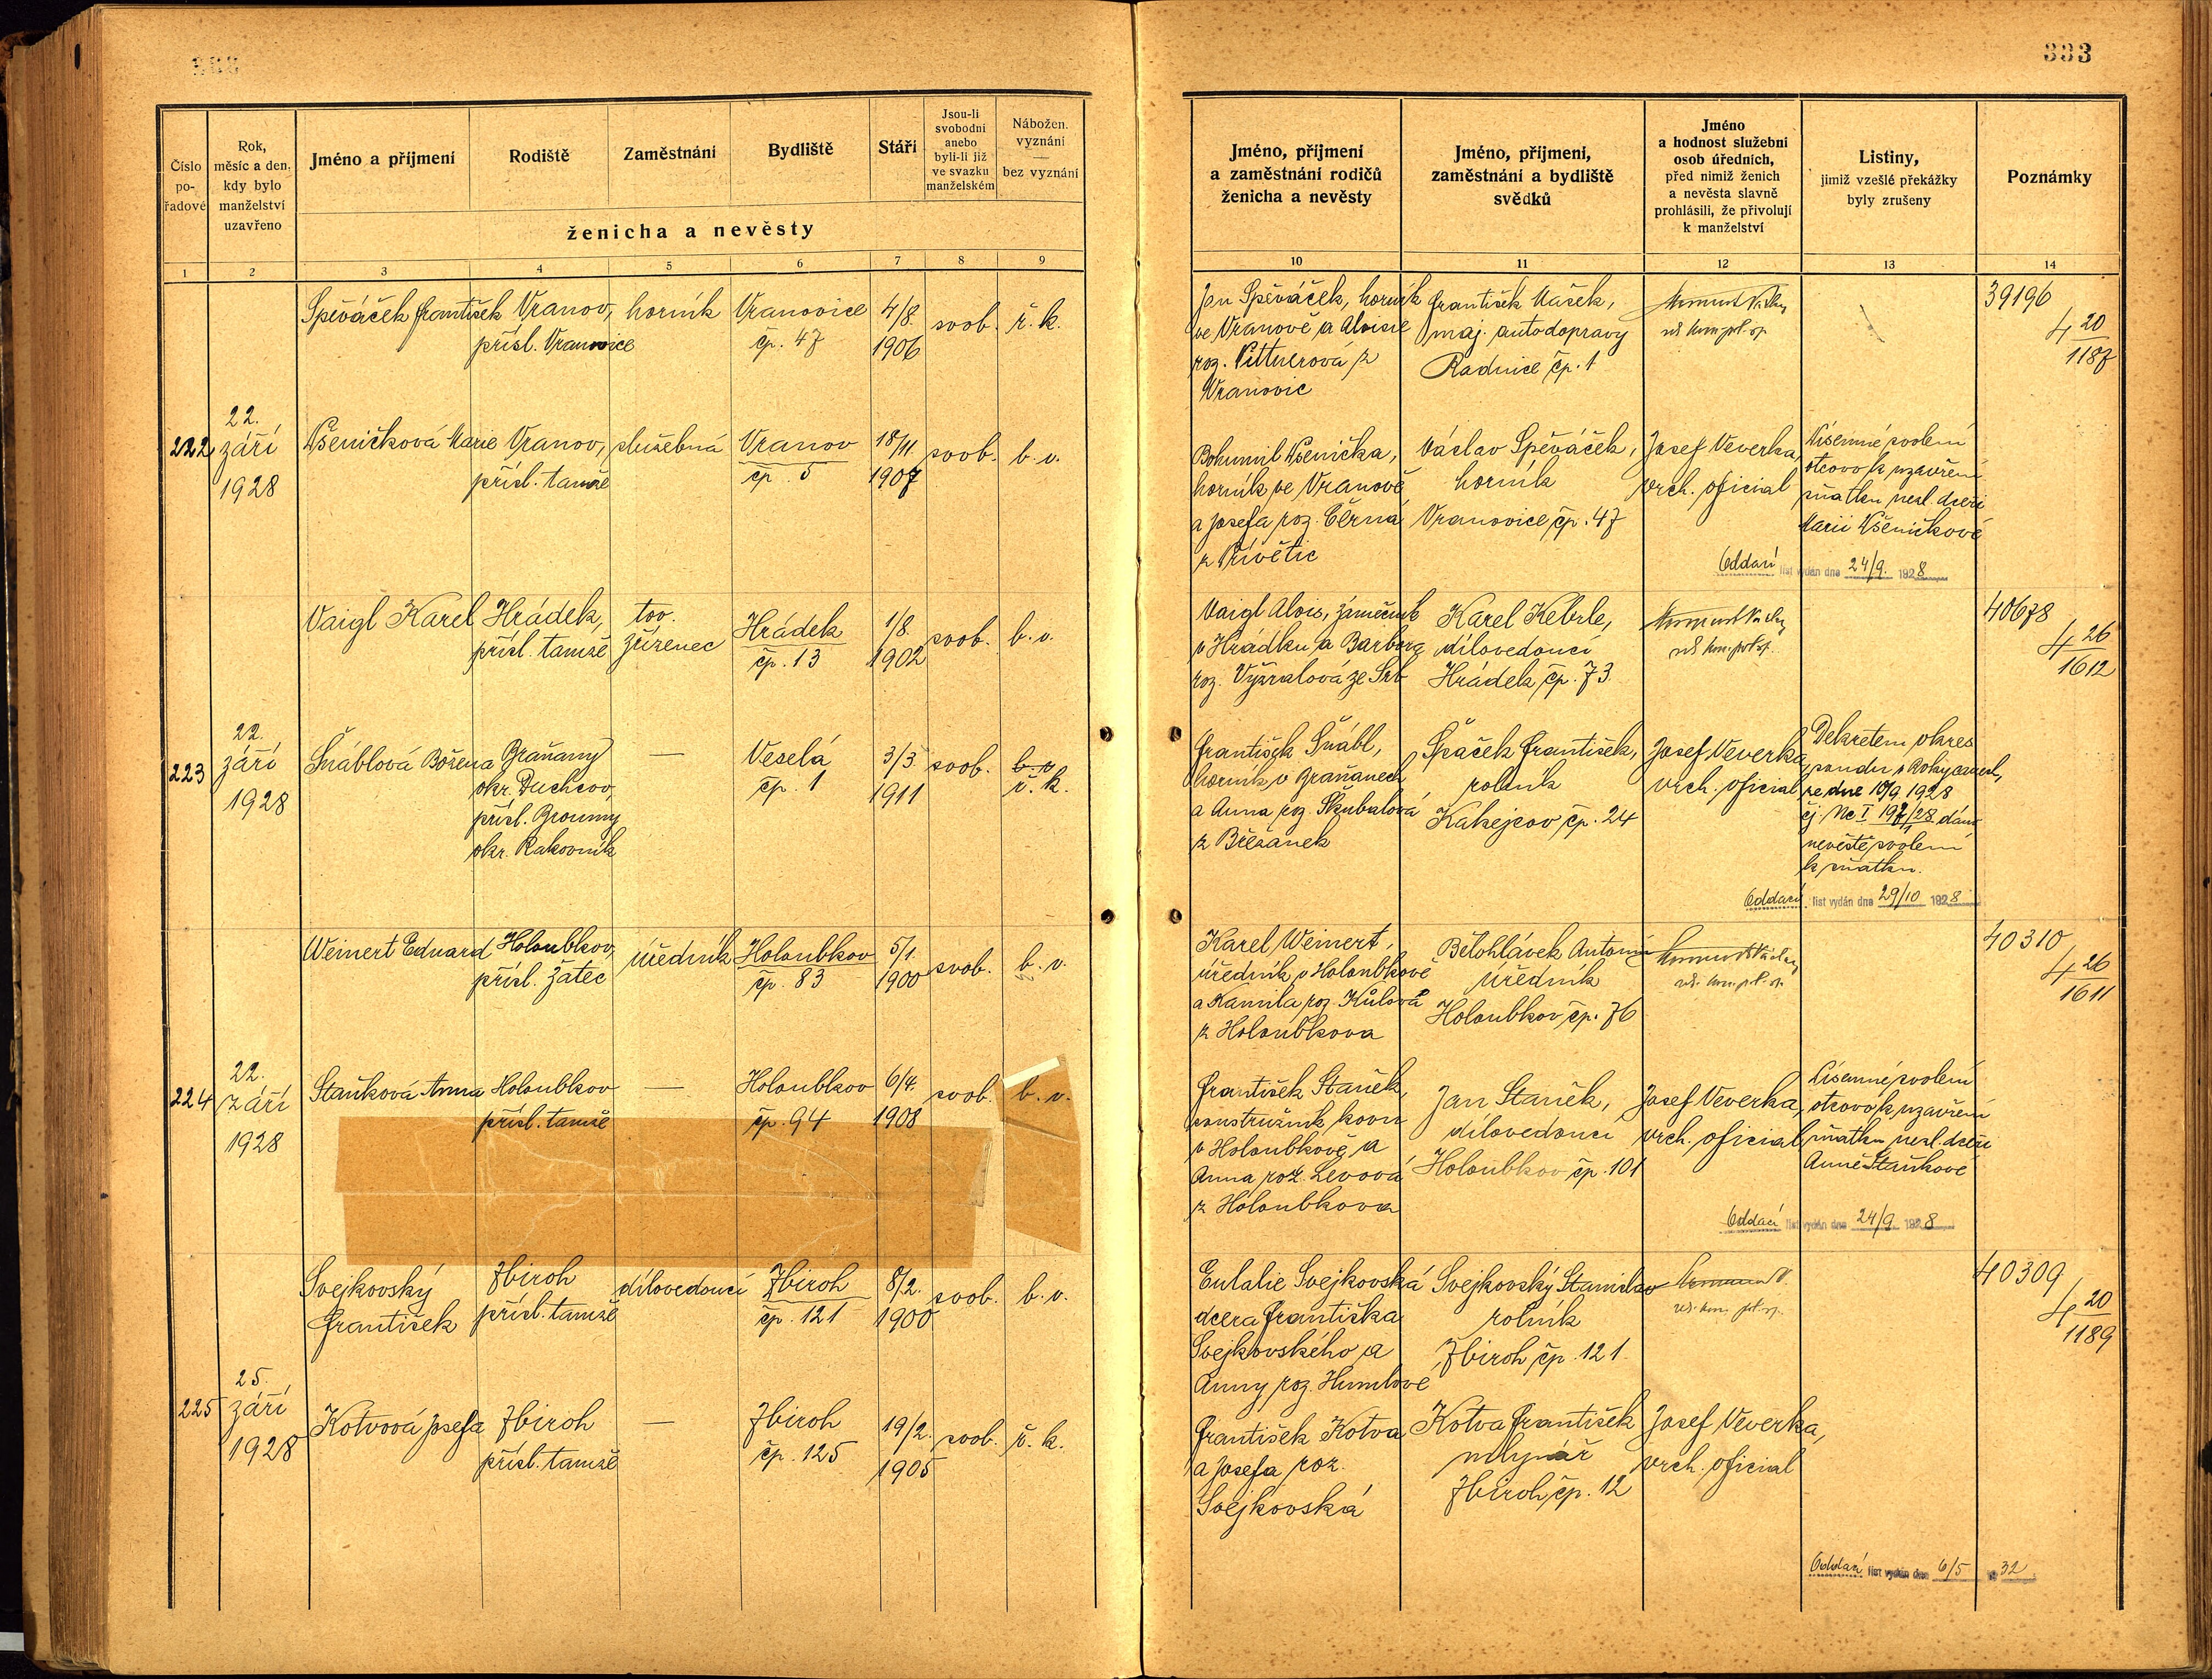 333
Číslo
po-
řadové
Rok,
měsíc a den,
kdy bylo
manželství
uzavřeno
Jméno a příjmení
Rodiště
Zaměstnání
Bydliště
Stáří
Jsou-li
svobodni
anebo
byli-li již
ve svazku
manželském
Nábožen.
vyznání
—
bez vyznání
ženicha a nevěsty
1 2 3 4 5 6 7 8 9
Jméno, příjmení
a zaměstnání rodičů
ženicha a nevěsty
Jméno, příjmení,
zaměstnání a bydliště
svědků
Jméno
a hodnost služební
osob úředních,
před nimiž ženich
a nevěsta slavně
prohlásili, že přivolují
k manželství
Listiny,
jimiž vzešlé překážky
byly zrušeny
Poznámky
10 11 12 13 14
Spěváček František
Vranov,
přísl. Vranovice
horník
Vranovice
čp. 47
4/8.
1906
svob.
ř. k.
Jan Spěváček, horník
ve Vranově a Aloisie
roz. Pittnerová z
Vranovic
František Mašek,
maj. autodopravy
Radnice čp. 1
39196
4 20
1187
222
22.
září
1928
Všeničková Marie
Vranov,
přísl. tamže
služebná
Vranov
čp. 5
18/11
1907
svob.
b. v.
Bohumil Všenička,
horník ve Vranově
a Josefa roz. Černá
z Přívětic
Václav Spěváček,
horník
Vranovice čp. 47
Josef Veverka,
vrch. oficial
Písemné svolení
otcovo k uzavření
sňatku nezl. dceři
Marii Všeničkové
Oddací list vydán dne 24/9. 1928
Vaigl Karel
Hrádek,
přísl. tamže
tov.
zřízenec
Hrádek
čp. 13
1/8.
1902
svob.
b. v.
Vaigl Alois, zámečník
v Hrádku a Barbora
roz. Vyzralová ze Srb
Karel Kebrle,
dílovedoucí
Hrádek čp. 73
40678
4 26
1612
223
22.
září
1928
Šnáblová Božena
Braňany
okr. Duchcov,
přísl. Broumy
okr. Rakovník
—
Veselá
čp. 1
3/3
1911
svob.
b. v.
ř. k.
František Šnábl,
horník v Braňanech
a Anna roz. Škubalová
z Břežánek
Špaček František,
rolník
Kakejcov čp. 24
Josef Veverka
vrch. oficial
Dekretem okres.
soudu v Rokycanech,
ze dne 10/9 1928
čj. Nc I 197/28 dáno
nevěstě svolení
k sňatku.
Oddací list vydán dne 29/10 1928
Weinert Eduard
Holoubkov,
přísl. Žatec
úředník
Holoubkov
čp. 83
5/1.
1900
svob.
b. v.
Karel Weinert,
úředník v Holoubkově
a Kamila roz. Kůlová
z Holoubkova
Bělohlávek Antonín
úředník
Holoubkov čp. 76
40310
4 26
1611
224
22.
září
1928
Staňková Anna
Holoubkov
přísl. tamže
—
Holoubkov
čp. 94
6/4.
1908
svob.
b. v.
František Staněk,
soustružník kovu
v Holoubkově a
Anna roz. Levová
z Holoubkova
Jan Staněk,
dílovedoucí
Holoubkov čp. 101
Josef Veverka,
vrch. oficial
Písemné svolení
otcovo k uzavření
sňatku nezl. dceři
Anně Staňkové
Oddací list vydán dne 24/9 1928
Svejkovský
František
Zbiroh
přísl. tamže
dílovedoucí
Zbiroh
čp. 121
8/2.
1900
svob.
b. v.
Eulalie Svejkovská
dcera Františka
Svejkovského a
Anny roz. Humlové
Svejkovský Stanislav
rolník
Zbiroh čp. 121
40309
4 20
1189
225
25.
září
1928
Kotvová Josefa
Zbiroh
přísl. tamže
—
Zbiroh
čp. 125
19/2.
1905
svob.
ř. k.
František Kotva
a Josefa roz.
Svejkovská
Kotva František
mlynář
Zbiroh čp. 12
Josef Veverka,
vrch. oficial
Oddací list vydán dne 6/5 32